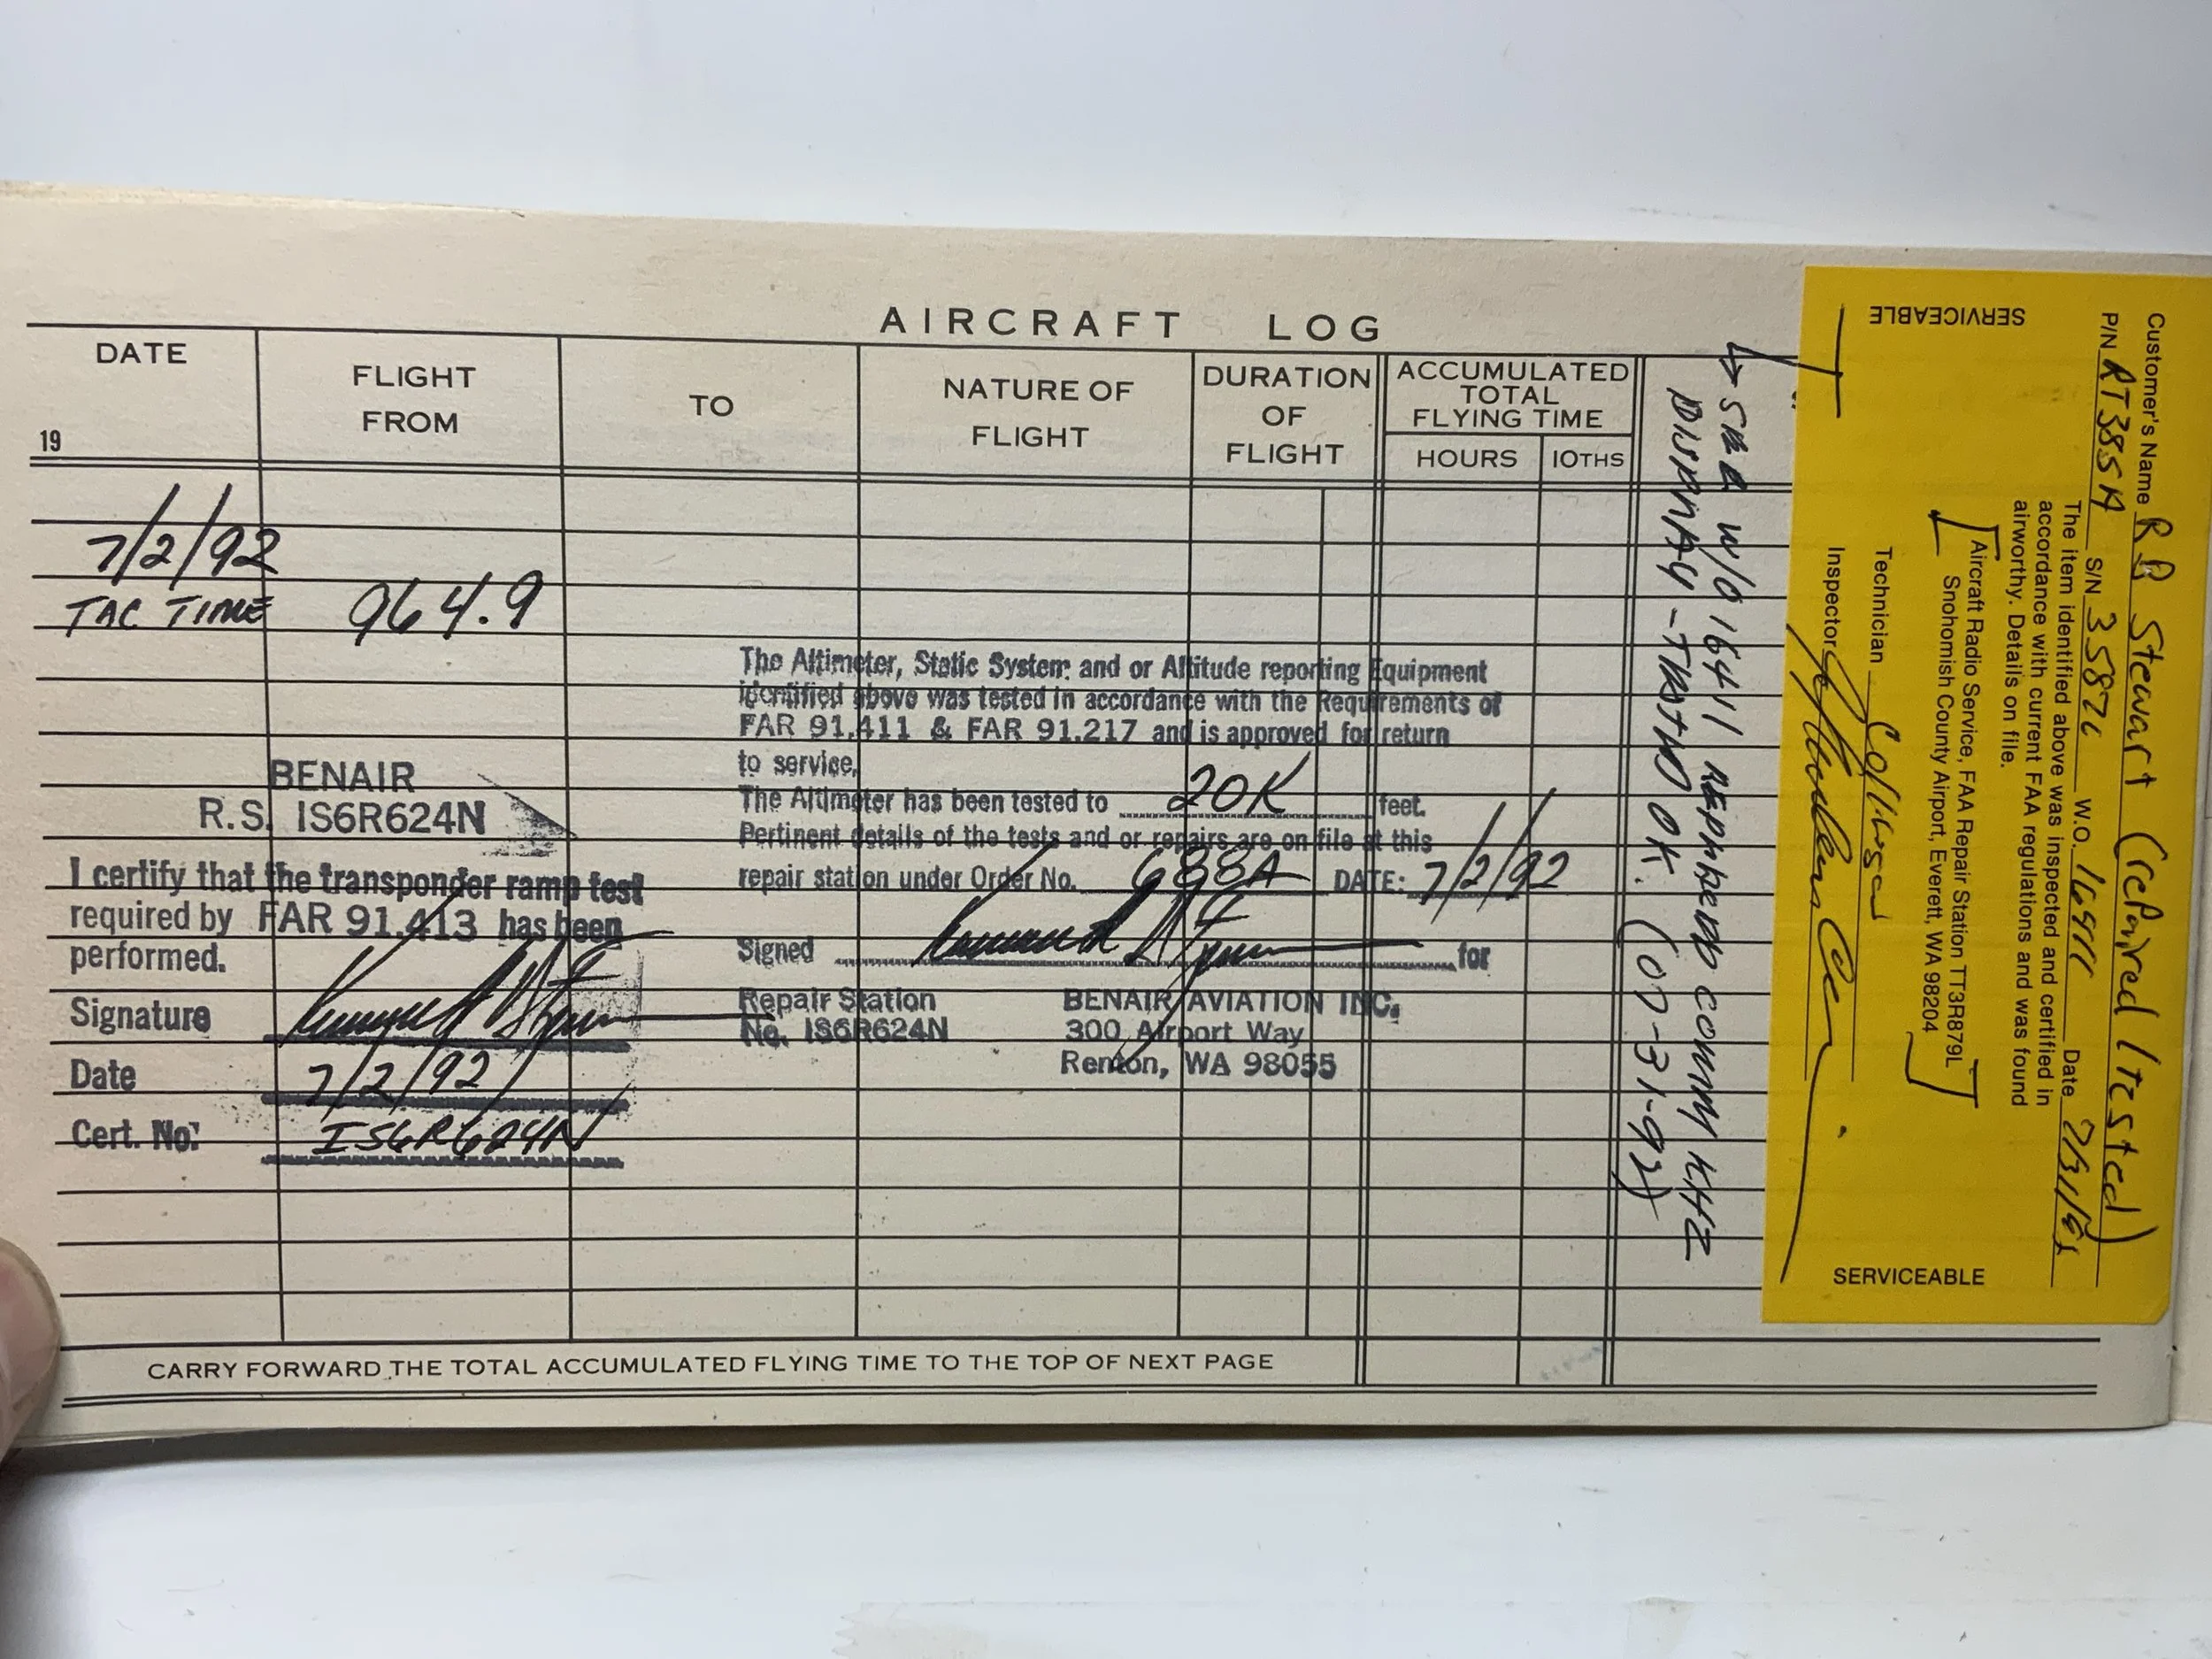 AIRCRAFT LOG
DATE
19
FLIGHT
FROM
TO
NATURE OF
FLIGHT
DURATION
OF
FLIGHT
ACCUMULATED
TOTAL
FLYING TIME
HOURS
10THS
7/2/92
TAC TIME 964.9
The Altimeter, Static System and or Altitude reporting Equipment
identified above was tested in accordance with the Requirements of
FAR 91.411 & FAR 91.217 and is approved for return
to service.
The Altimeter has been tested to 20K feet.
Pertinent details of the tests and or repairs are on file at this
repair station under Order No. 688A DATE: 7/2/92
Signed for
Repair Station
No. IS6R624N
BENAIR AVIATION INC.
300 Airport Way
Renton, WA 98055
BENAIR
R.S. IS6R624N
I certify that the transponder ramp test
required by FAR 91.413 has been
performed.
Signature
Date 7/2/92
Cert. No: IS6R624N
CARRY FORWARD THE TOTAL ACCUMULATED FLYING TIME TO THE TOP OF NEXT PAGE
W/O 16411 COMM KHZ
DISPLAY - OK. (07-31-92)
Customer's Name RB Stewart (repaired/tested)
P/N RT385A S/N W.O. Date
The item identified above was inspected and certified in
accordance with current FAA regulations and was found
airworthy. Details on file.
Aircraft Radio Service, FAA Repair Station TT3R879L
Snohomish County Airport, Everett, WA 98204
Technician
Inspector
SERVICEABLE
SERVICEABLE